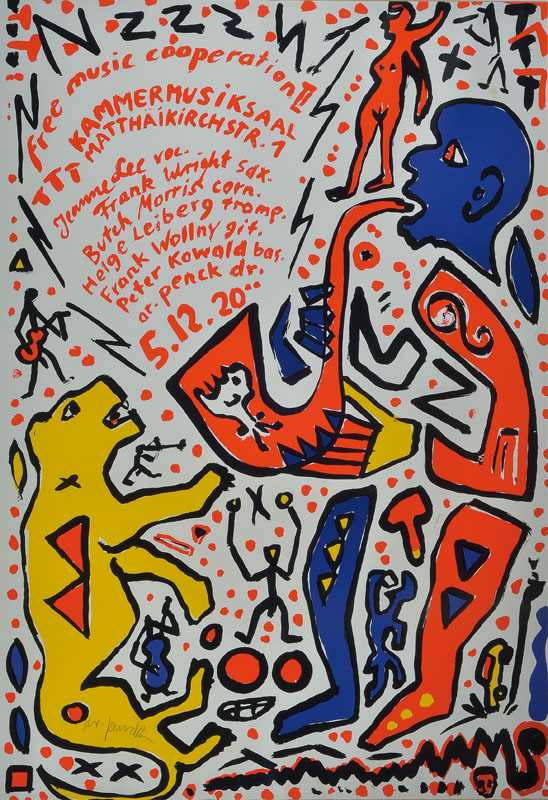 free music cooperation II
TTT KAMMERMUSIKSAAL
MATTHAIKIRCHSTR. 1
Jeanne Lee voc.
Frank Wright Sax.
Butch Morris corn.
Helge Leiberg tromp.
Frank Wollny git.
Peter Kowald bas.
ar. penck dr.
5.12. 20°°
TTT
ar. penck